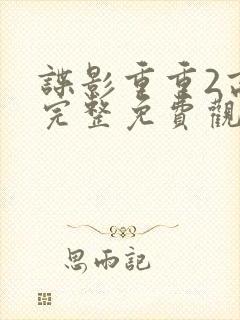 諜影重重2高
完整免費觀
思雨記